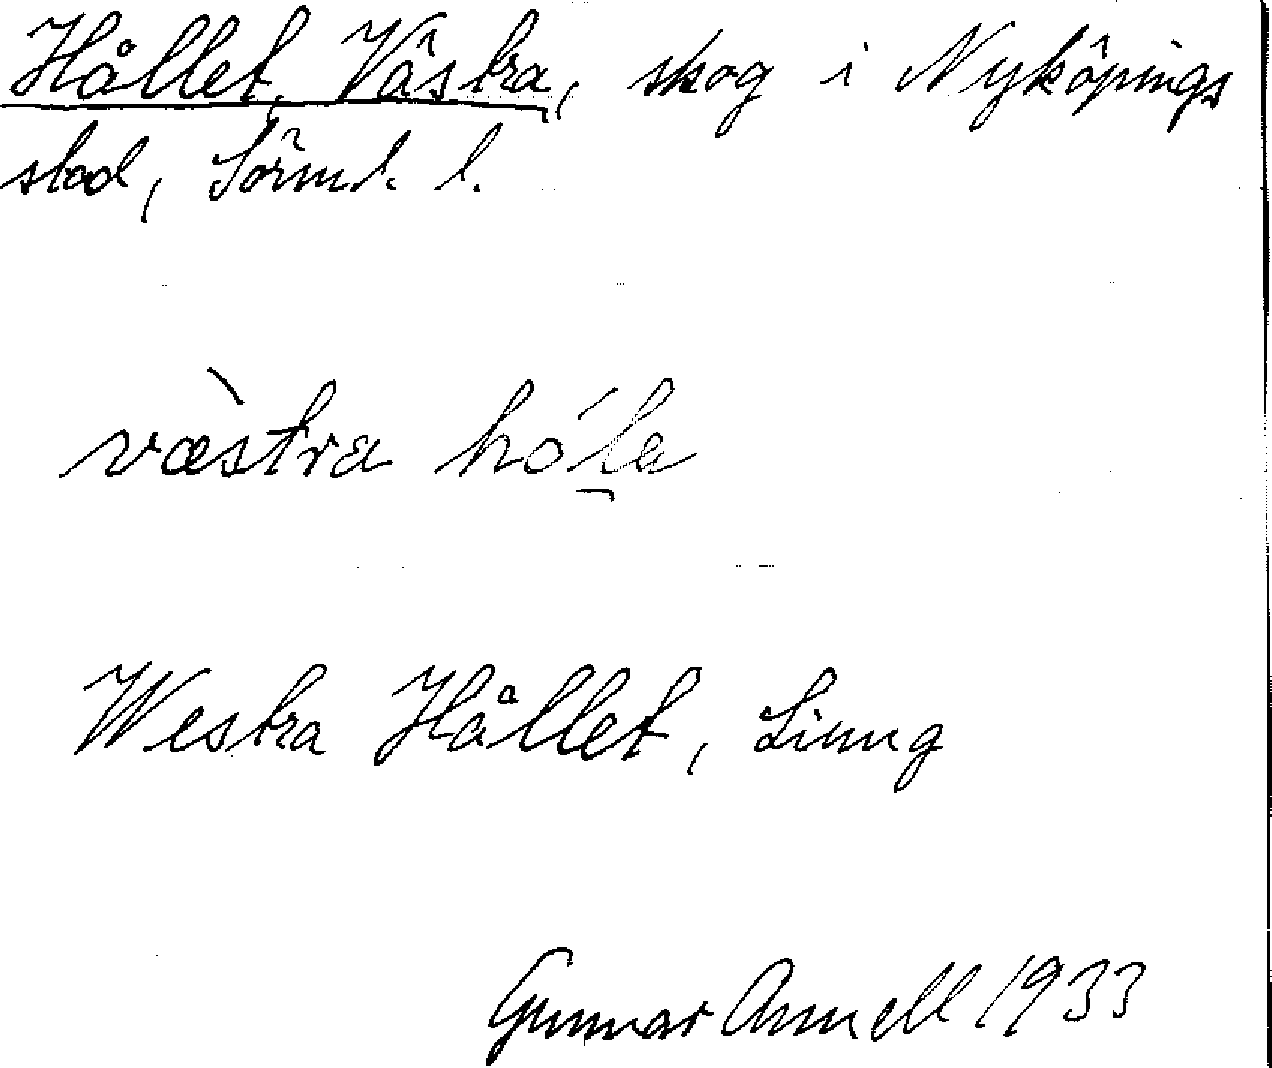 Hållet, Västra, skog i Nyköpings
stad, Sörml. l.
væ̀stra hó̱la
Westra Hållet, Liung
Gunnar Annell 1933